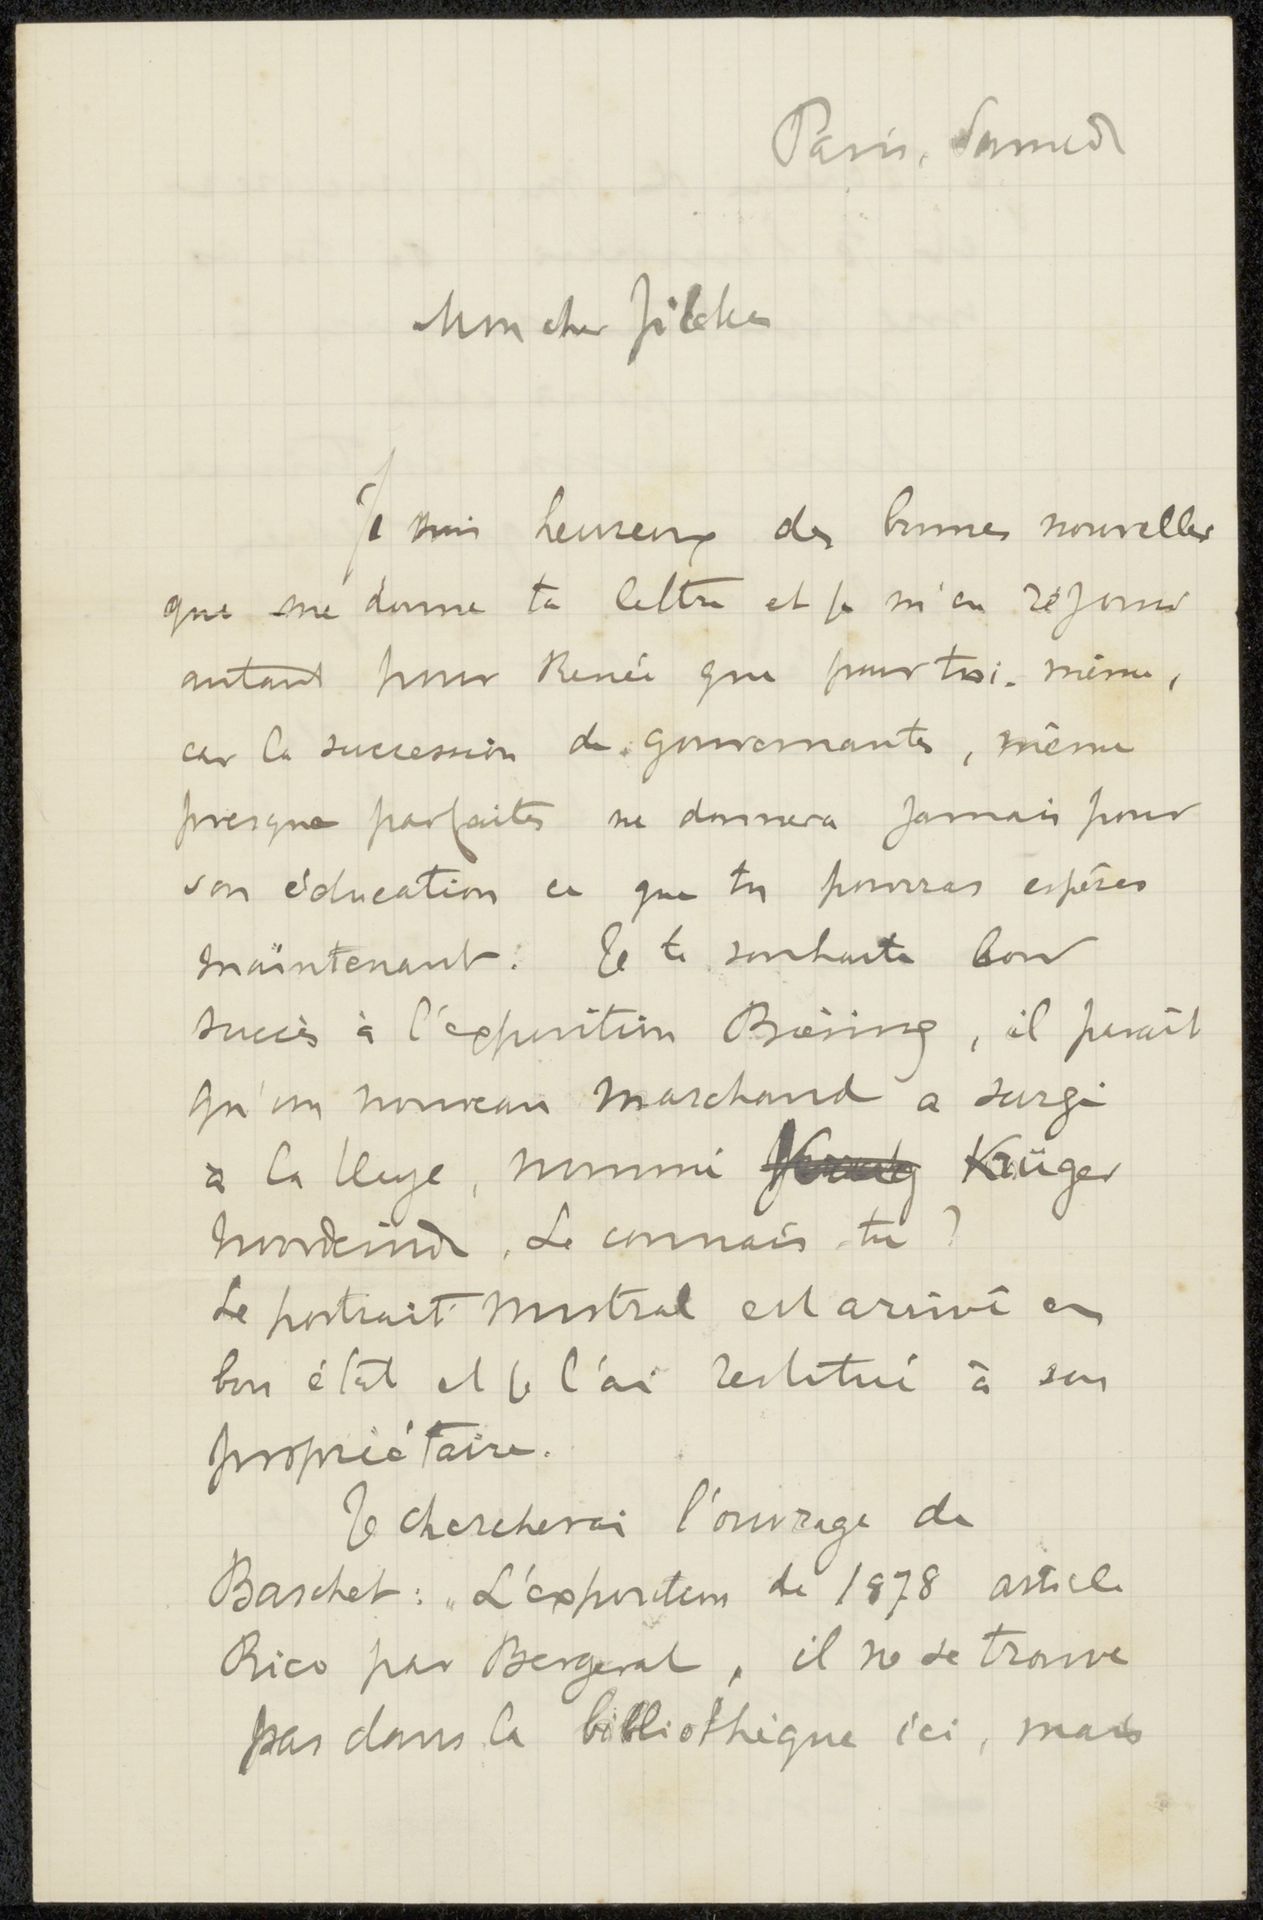 Paris, Samedi
Mon cher Zilcken
Je suis heureux des bonnes nouvelles
que me donne ta lettre et je m'en réjouis
autant pour Renée que pour toi-même,
car la succession de gouvernantes, même
presque parfaites ne donnera jamais pour
son éducation ce que tu pourras espérer
maintenant. Je te souhaite bon
succès à l'exposition Biesing, il parait
qu'un nouveau marchand a surgi
à la Haye, nommé Krüger
. Le connais-tu ?
Le portrait Mistral est arrivé en
bon état et je l'ai restitué à son
propriétaire.
Je chercherai l'ouvrage de
Baschet : "L'exposition de 1878 article
Rico par Bergerat, il ne se trouve
pas dans la bibliothèque ici, mais